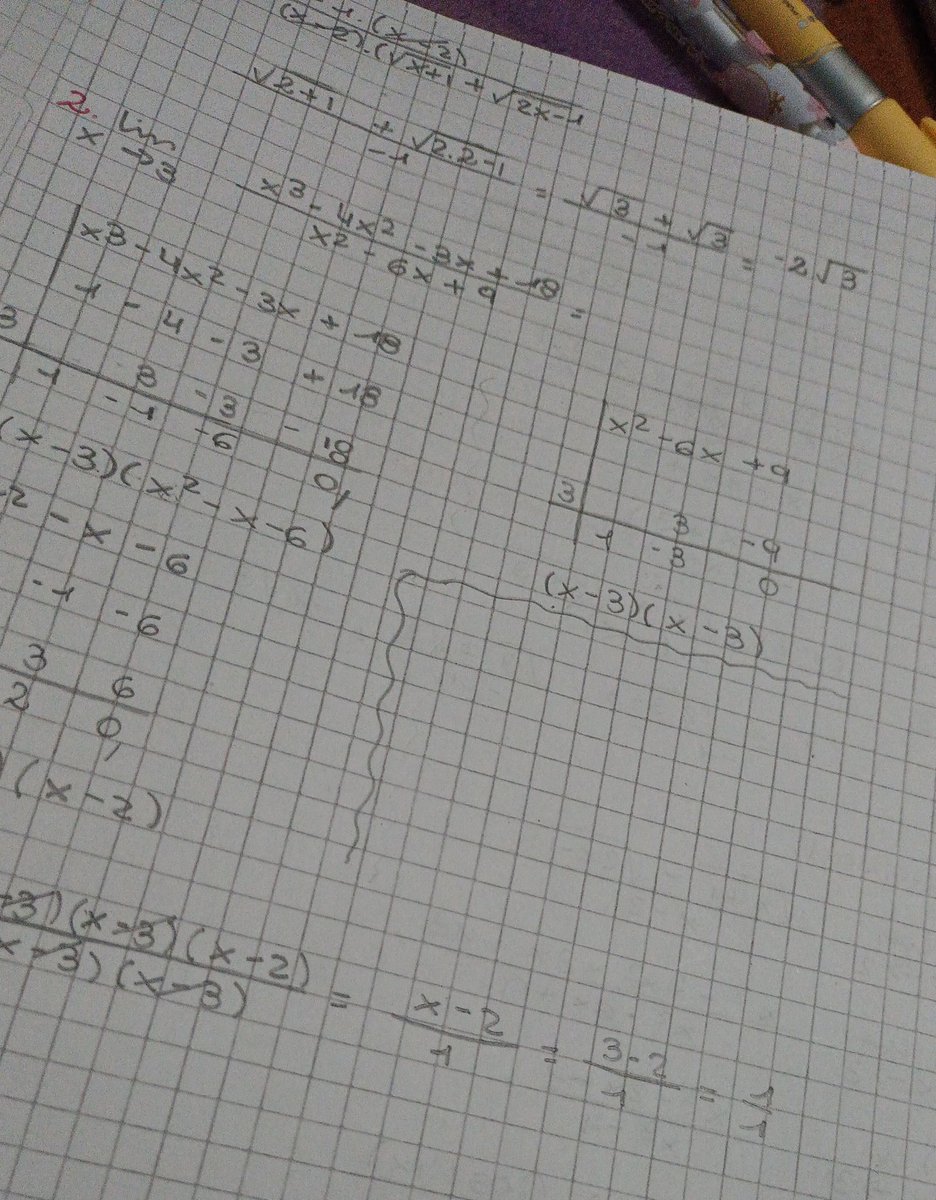 -1.(x-2)
(x-2).(√x+1 + √2x-1
√2+1 + √2.2-1 / -1 = √3 + √3 / -1 = -2√3
2. lim x→3 x3 - 4x2 - 3x + 18 / x2 - 6x + 9 =
x3 - 4x2 - 3x + 18
1 - 4 - 3 + 18
3 3 - 3 - 18
1 -1 -6 0
(x-3)(x2-x-6)
2 - x - 6
-1 -6
3 6
2 0
)(x-2)
x2 - 6x + 9
3 3 -9
1 -3 0
(x-3)(x-3)
-3)(x-3)(x-2) / x-3)(x-3) = x-2 / 1 = 3-2 / 1 = 1